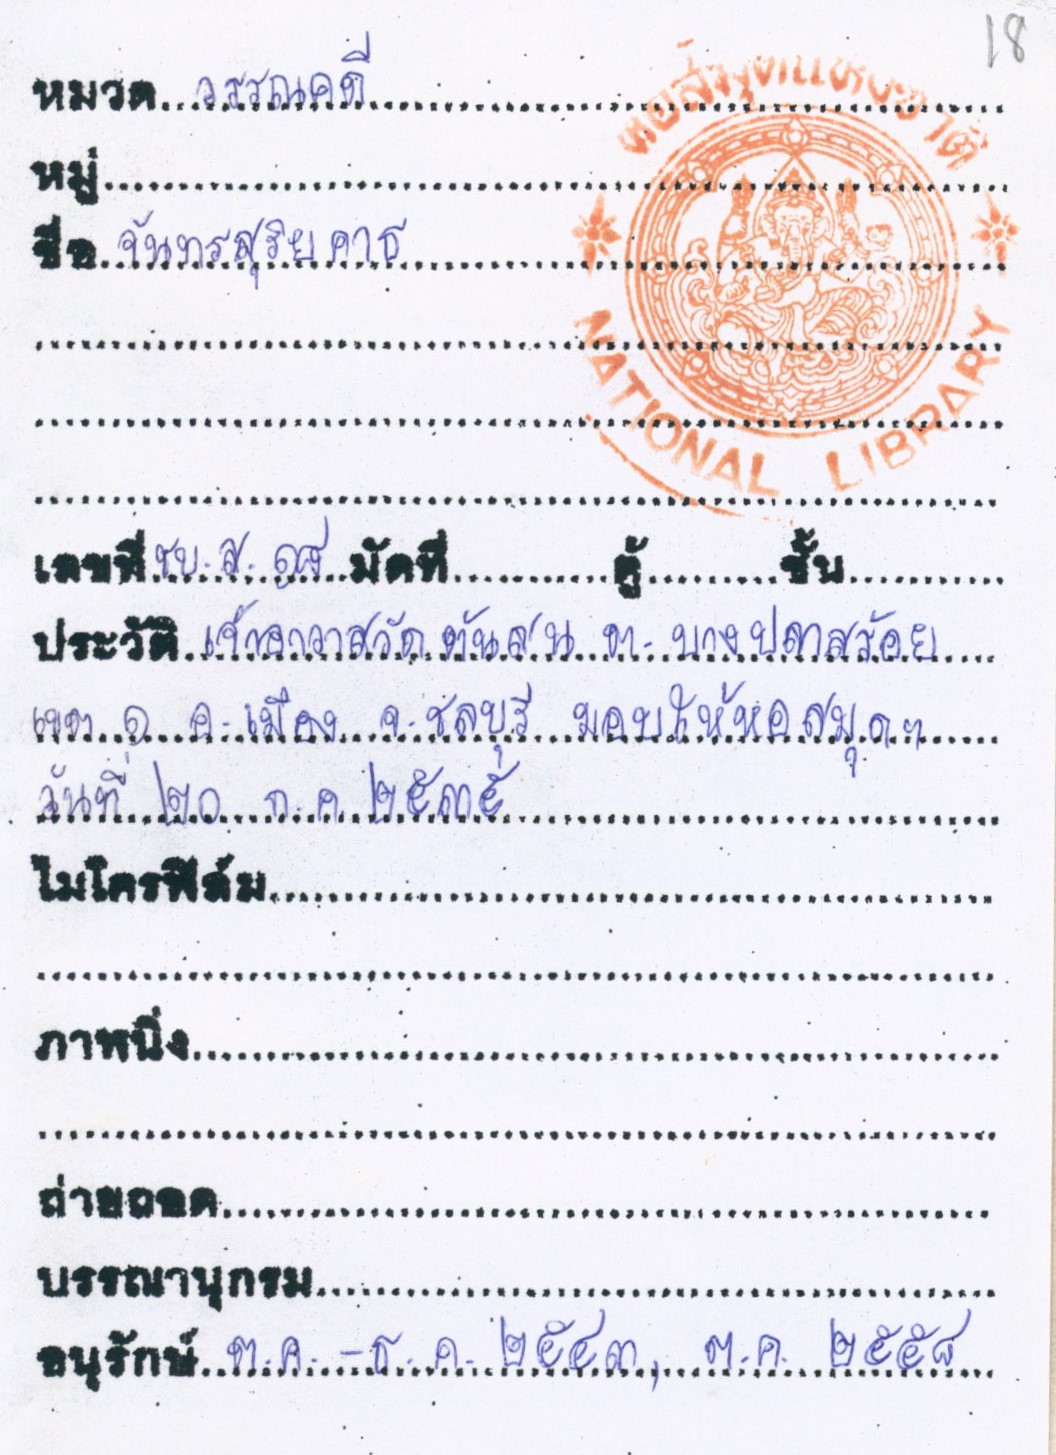 18
หมวด วรรณคดี
หมู่
ชื่อ จันทรสุริยคาธ
หอสมุดแห่งชาติ
NATIONAL LIBRARY
เลขที่ ชบ. ส. ๑๘ มัดที่ ตู้ ชั้น
ประวัติ เจ้าอาวาสวัดต้นสน ต. บางปลาสร้อย
เขต ๑ อ. เมือง จ. ชลบุรี มอบให้หอสมุดฯ
วันที่ ๒๐ ก.ค. ๒๕๓๕
ไมโครฟิล์ม
ภาพนิ่ง
ถ่ายถอด
บรรณานุกรม
อนุรักษ์ ต.ค. - ธ.ค. ๒๕๔๓, ต.ค. ๒๕๕๘